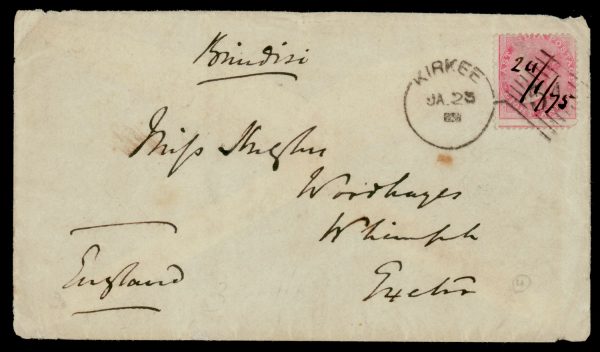 Brindisi
KIRKEE
JA. 23
24/1/75
Miss Hughes
Woodhayes
Whimple
Exeter
England